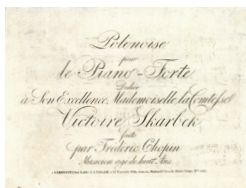 Polonoise
pour
le Piano-Forte
Dediée
à Son Excellence Mademoiselle la Comtesse
Victoire Skarbek
faite
par Frédéric Chopin
Musicien agé de huit Ans